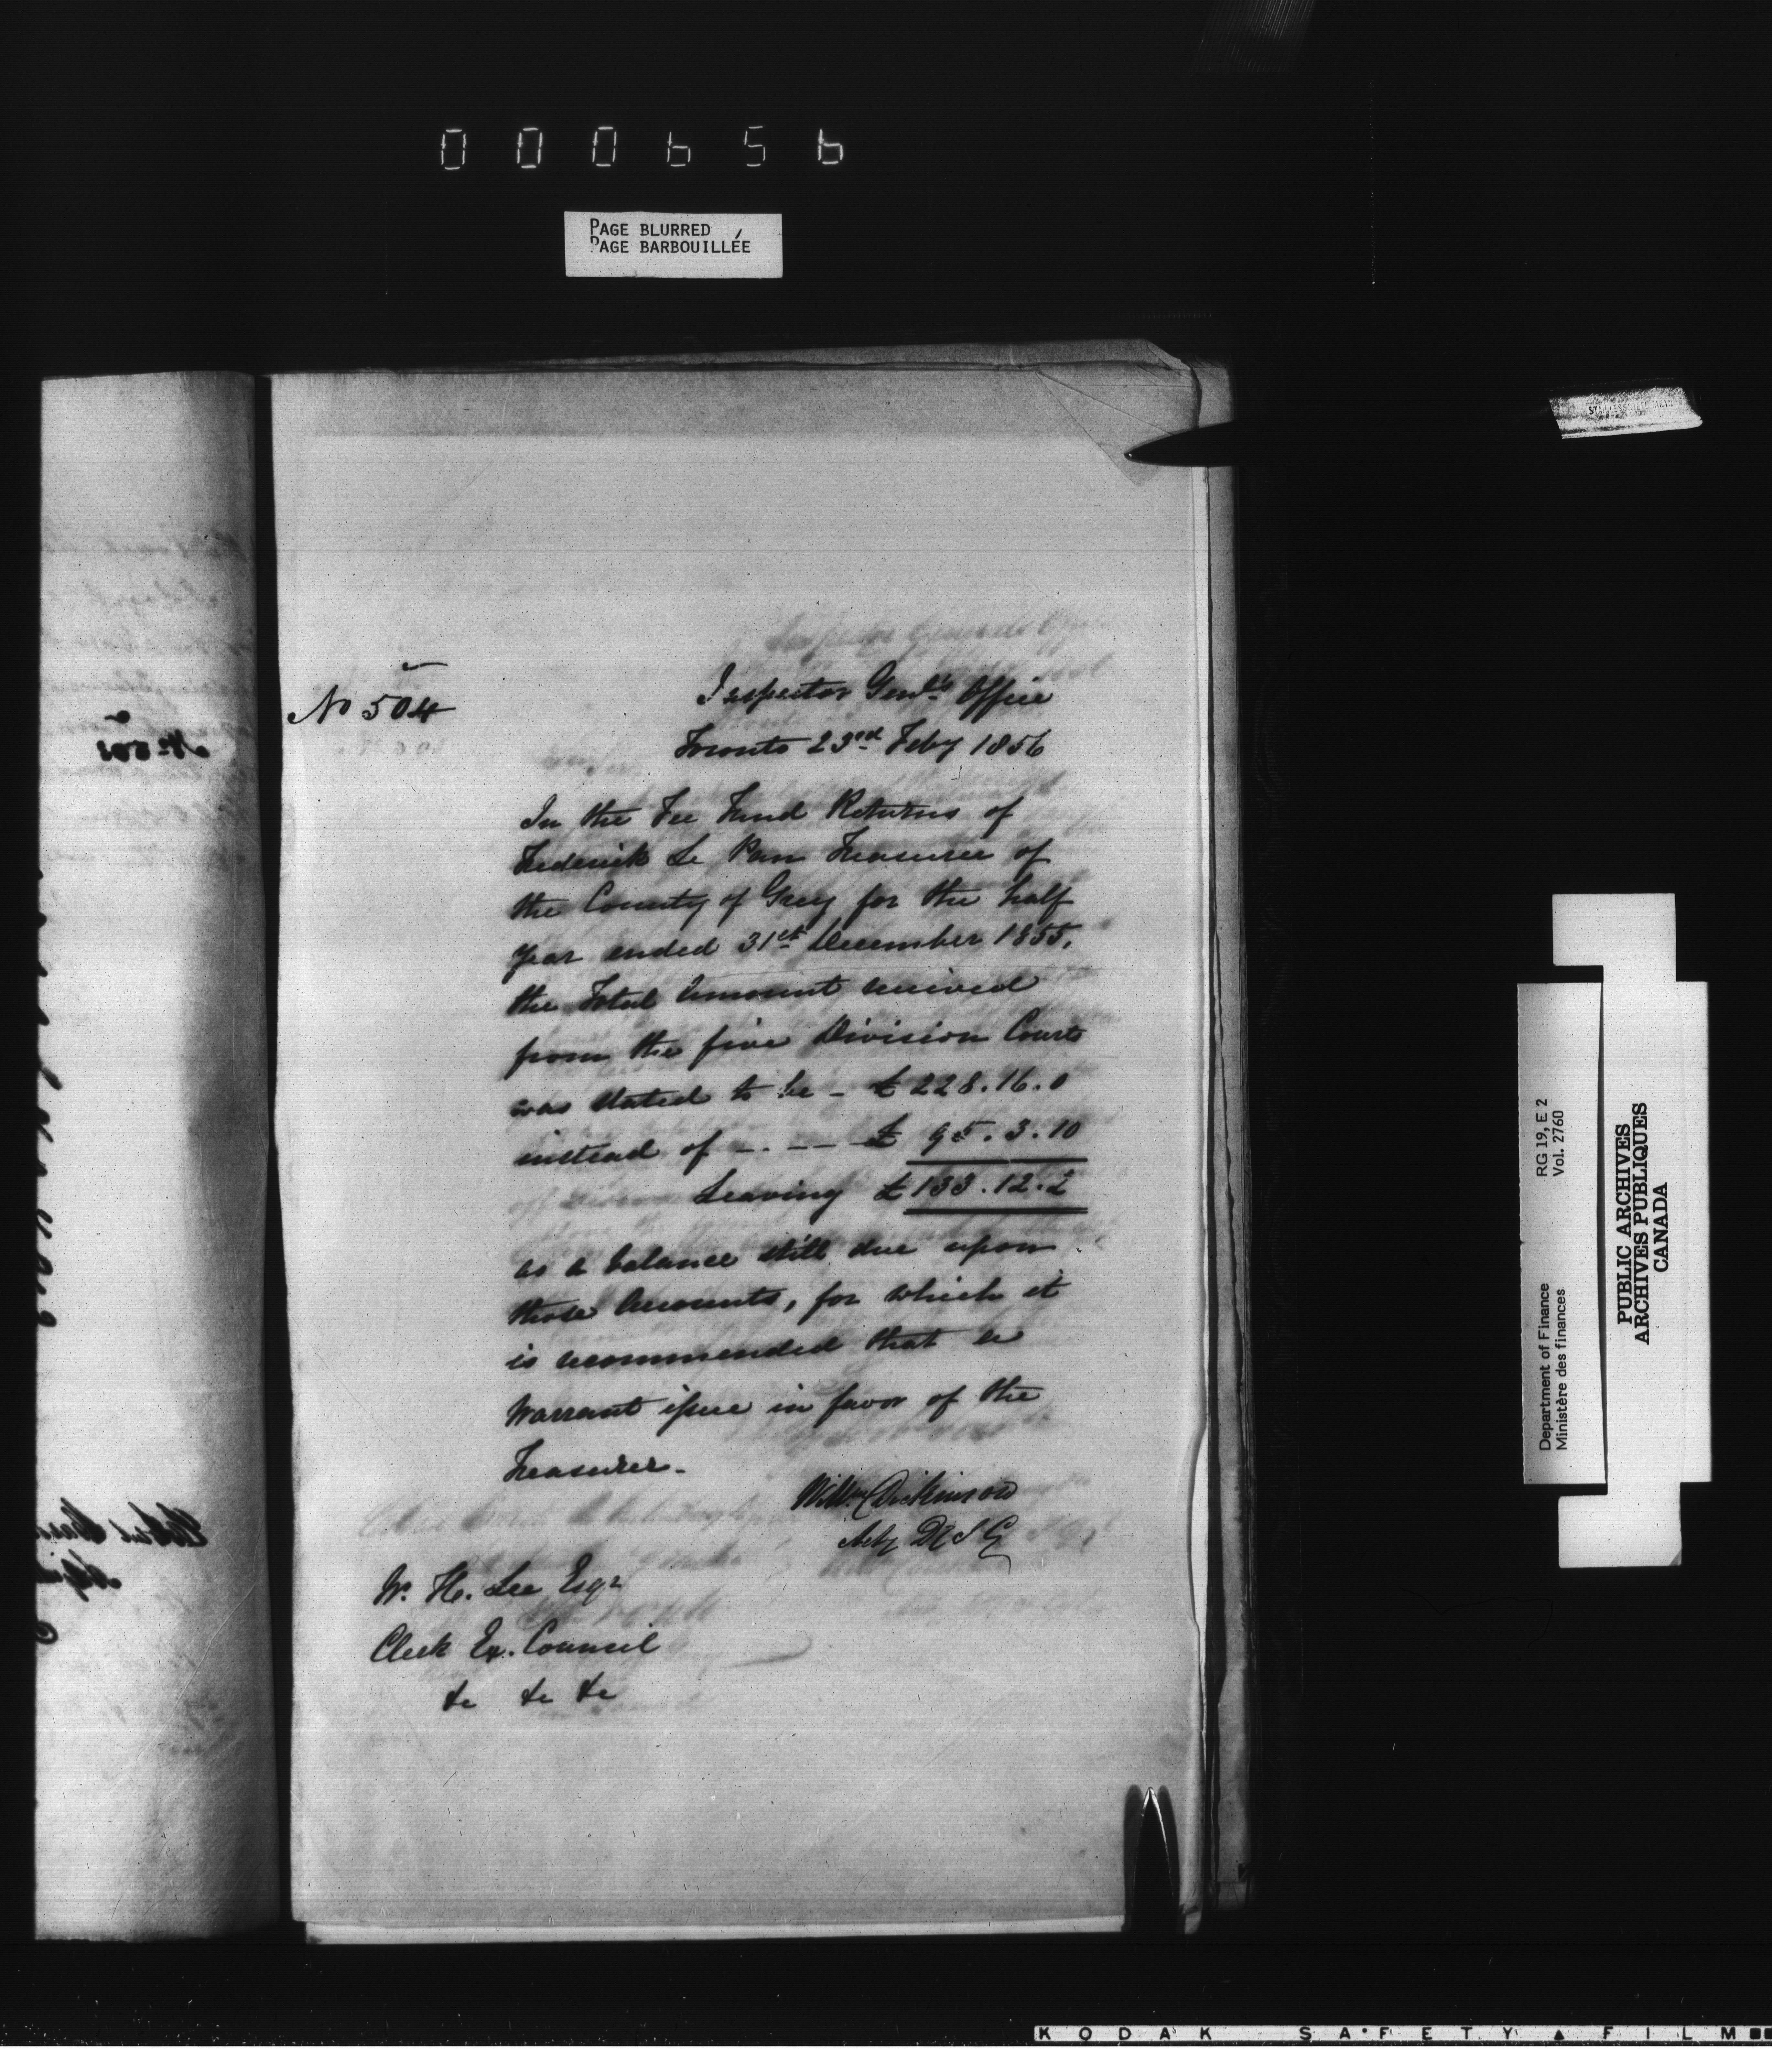 000656
PAGE BLURRED
PAGE BARBOUILLÉE
No 504
Inspector Genl's Office
Toronto 23rd Feby 1856
In the Fee Fund Returns of
Frederick Le Pan Treasurer of
the County of Grey for the half
year ended 31st December 1855,
the Total Amount received
from the five Division Courts
was stated to be - £228.16.0
instead of - . - - £ 95.3.10
Leaving £133.12.2
as a balance still due upon
those Accounts, for which it
is recommended that a
Warrant issue in favor of the
Treasurer.
Willm Dickinson
Actg D I G
W. H. Lee Esqr
Clerk Ex. Council
&c &c &c
No 503
RG 19, E 2
Vol. 2760
Department of Finance
Ministère des finances
PUBLIC ARCHIVES
ARCHIVES PUBLIQUES
CANADA
KODAK SAFETY FILM